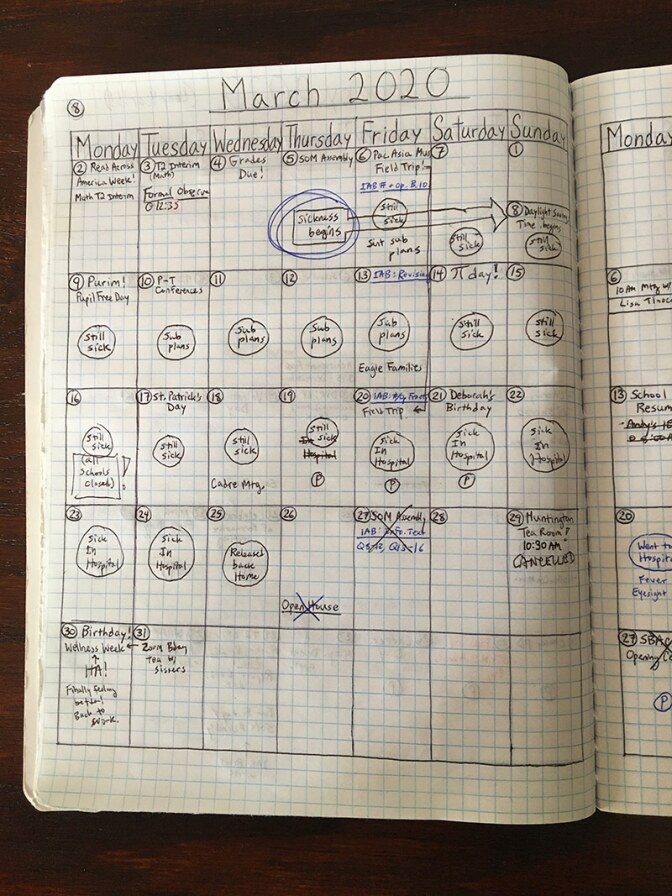 8
March 2020
Monday Tuesday Wednesday Thursday Friday Saturday Sunday
2 Read Across
America Week!
Math T2 Interim
3 T2 Interim
(Math)
Formal Observ
@ 12:35
4 Grades
Due!
5 SOM Assembly
Sickness
begins
6 Pac Asia Mus
Field Trip!
Still
Sick
Sent sub
plans
7
Still
Sick
1
8 Daylight Saving
Time begins
Still
Sick
9 Purim!
Pupil Free Day
Still
Sick
10 P-T
Conferences
Sub
plans
11
Sub
plans
12
Sub
plans
13 IAB: Revision
Sub
plans
Eagle Families
14 π day!
Still
Sick
15
Still
Sick
16
Still
Sick
(all
Schools
Closed)
!
17 St. Patrick's
Day
Still
Sick
18
Still
Sick
Cadre Mtg.
19
Still
Sick
Hospital
P
20
Field Trip
Sick
In
Hospital
P
21 Deborah's
Birthday
Sick
In
Hospital
P
22
Sick
In
Hospital
23
Sick
In
Hospital
24
Sick
In
Hospital
25
Released
back
Home
26
Open House
27 SOM Assembly
IAB: Info. Text
28
29 Huntington
Tea Room?
10:30 AM
CANCELLED
30 Birthday!
Wellness Week
HA!
Finally feeling
better!
Back to
Work.
31
Tea w/
Sisters
Monday
6
10 AM Mtg w/
Lisa
13 School
Resum
20
Went to
Hospital
Fever
Eyesight
27 SBAC
Opening
P